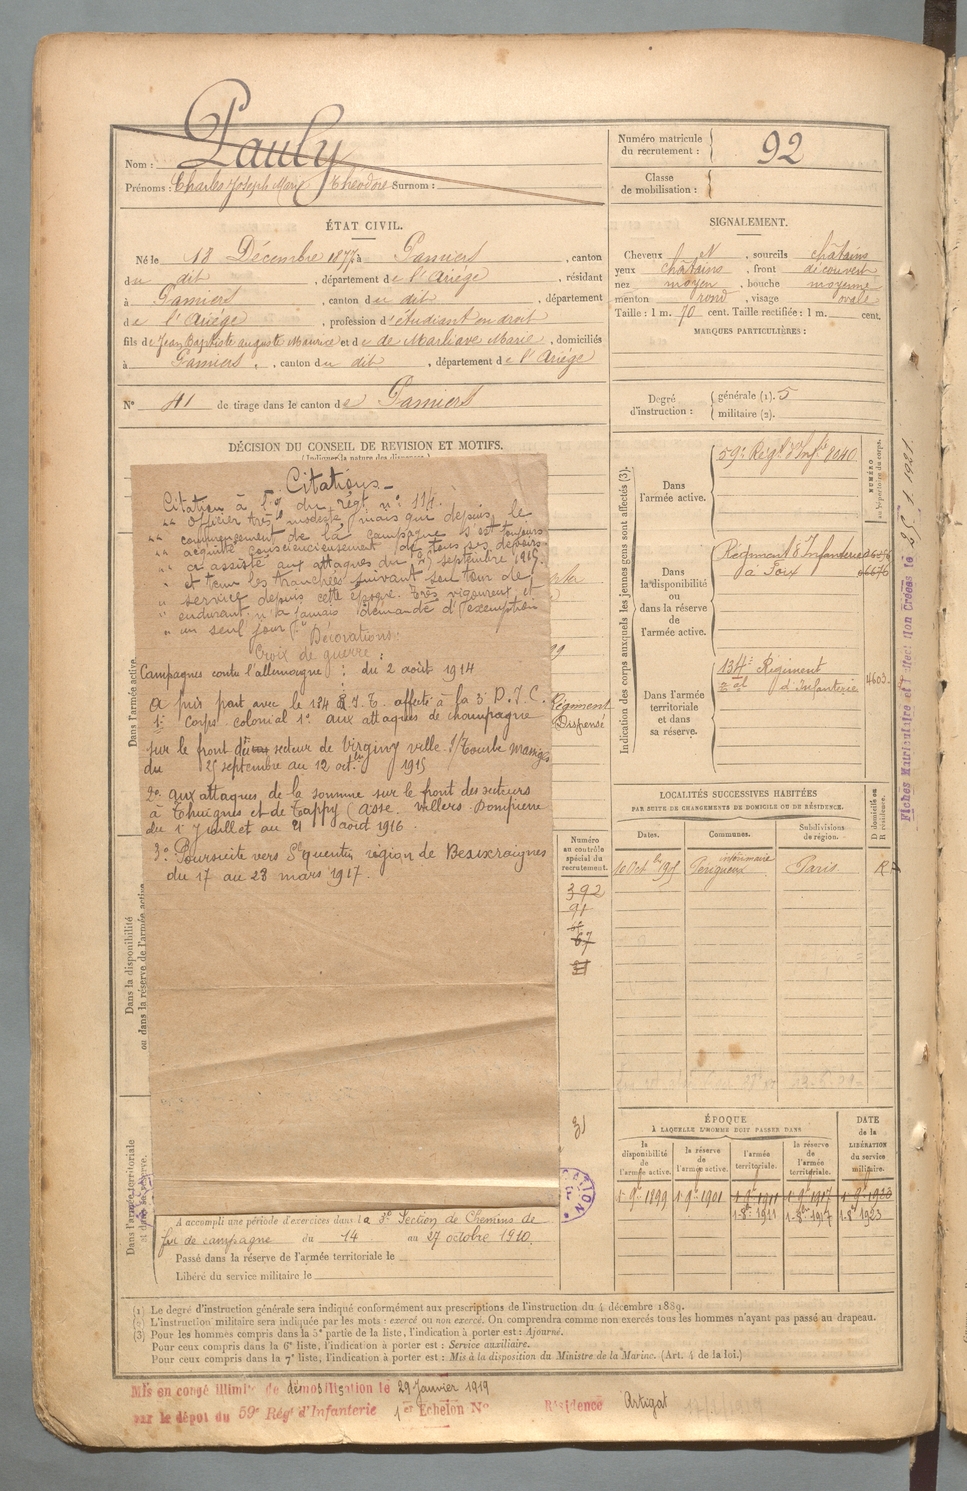 Nom : Pauly
Prénoms : Charles Joseph Marie Théodore Surnom :
Numéro matricule du recrutement : 92
Classe de mobilisation :
ÉTAT CIVIL.
Né le 18 Décembre 1877, à Pamiers, canton
du dit, département de l'Ariège, résidant
à Pamiers, canton du dit, département
de l'Ariège, profession d'étudiant en droit
fils de Jean Baptiste auguste Maurice et de de Marliave Marie, domiciliés
à Pamiers, canton du dit, département de l'Ariège
N° 41 de tirage dans le canton de Pamiers
SIGNALEMENT.
Cheveux et, sourcils châtains
yeux châtains, front découvert
nez moyen, bouche moyenne
menton rond, visage ovale
Taille : 1 m. 70 cent. Taille rectifiée : 1 m. cent.
MARQUES PARTICULIÈRES :
Degré d'instruction : générale (1). 5
militaire (2).
DÉCISION DU CONSEIL DE REVISION ET MOTIFS.
Citations
Citation à l'o du régt n° 114.
" Officier très modeste, mais qui depuis le
" commencement de la campagne s'est toujours
" acquitté consciencieusement de tous ses devoirs
" a assisté aux attaques du 25 septembre 1915
" et tenu les tranchées suivant seul tour de
" service depuis cette époque. Très vigoureux et
" endurant n'a jamais demandé d'exemption
" un seul jour
Décorations :
Croix de guerre :
Campagnes contre l'allemagne : du 2 août 1914
A pris part avec le 134 R.I.T. affecté à la 3e D.I.C.
1er corps colonial 1° aux attaques de champagne
sur le front du secteur de Virginy ville s/Tourbe Massiges
du 25 septembre au 12 octbre 1915
2° aux attaques de la somme sur le front des secteurs
à Chuignes et de Cappy (asse. villers Dompierre
du 1er Juillet au 21 août 1916.
3° Poursuite vers St quentin région de Beauvraignes
du 17 au 23 mars 1917.
Régiment
Dispensé
Indication des corps auxquels les jeunes gens sont affectés (3).
Dans l'armée active.
59e Régt d'Infie 2040
NUMÉRO au répertoire du corps.
Dans la disponibilité ou dans la réserve de l'armée active.
Régiment d'Infanterie
à Foix
6676
Dans l'armée territoriale et dans sa réserve.
134e Régiment
tal d'Infanterie
4603
LOCALITÉS SUCCESSIVES HABITÉES
PAR SUITE DE CHANGEMENTS DE DOMICILE OU DE RÉSIDENCE.
Dates. Communes. Subdivisions de région. D domicile ou R résidence.
10 Oct bre 1905 Perigueux Paris R
Numéro au contrôle spécial du recrutement.
392
91
67
Dans l'armée active.
Dans la disponibilité ou dans la réserve de l'armée active.
Dans l'armée territoriale et dans sa réserve.
ÉPOQUE
À LAQUELLE L'HOMME DOIT PASSER DANS
la disponibilité de l'armée active.
la réserve de l'armée active.
l'armée territoriale.
la réserve de l'armée territoriale.
DATE de la LIBÉRATION du service militaire.
1er 9bre 1899 1er 9bre 1901 1er 9bre 1911 1er 9bre 1917 1er 9bre 1923
1er 8bre 1911 1er 8bre 1917 1er 8bre 1923
A accompli une période d'exercices dans la 3e Section de Chemins de
fer de campagne du 14 au 27 octobre 1910.
Passé dans la réserve de l'armée territoriale le
Libéré du service militaire le
(1) Le degré d'instruction générale sera indiqué conformément aux prescriptions de l'instruction du 4 décembre 1889.
(2) L'instruction militaire sera indiquée par les mots : exercé ou non exercé. On comprendra comme non exercés tous les hommes n'ayant pas passé au drapeau.
(3) Pour les hommes compris dans la 5e partie de la liste, l'indication à porter est : Ajourné.
Pour ceux compris dans la 6e liste, l'indication à porter est : Service auxiliaire.
Pour ceux compris dans la 7e liste, l'indication à porter est : Mis à la disposition du Ministre de la Marine. (Art. 4 de la loi.)
Mis en congé illimité de démobilisation le 29 Janvier 1919
par le dépôt du 59e Régt d'Infanterie 1er Echelon N° Résidence Artigat
Fiches Matriculaire et d'Affectation Créées le 1921